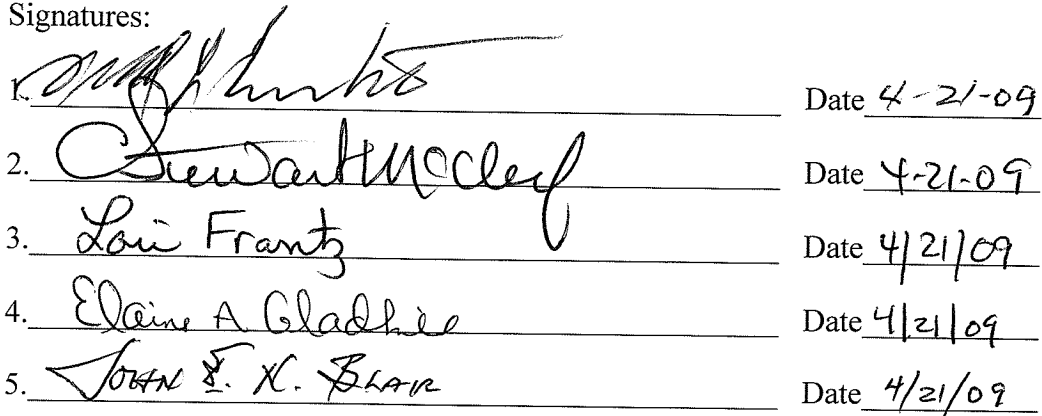 Signatures:
1. Date 4-21-09
2. Stewart McCleaf Date 4-21-09
3. Lori Frantz Date 4/21/09
4. Elaine A Gladhill Date 4/21/09
5. John Blair Date 4/21/09